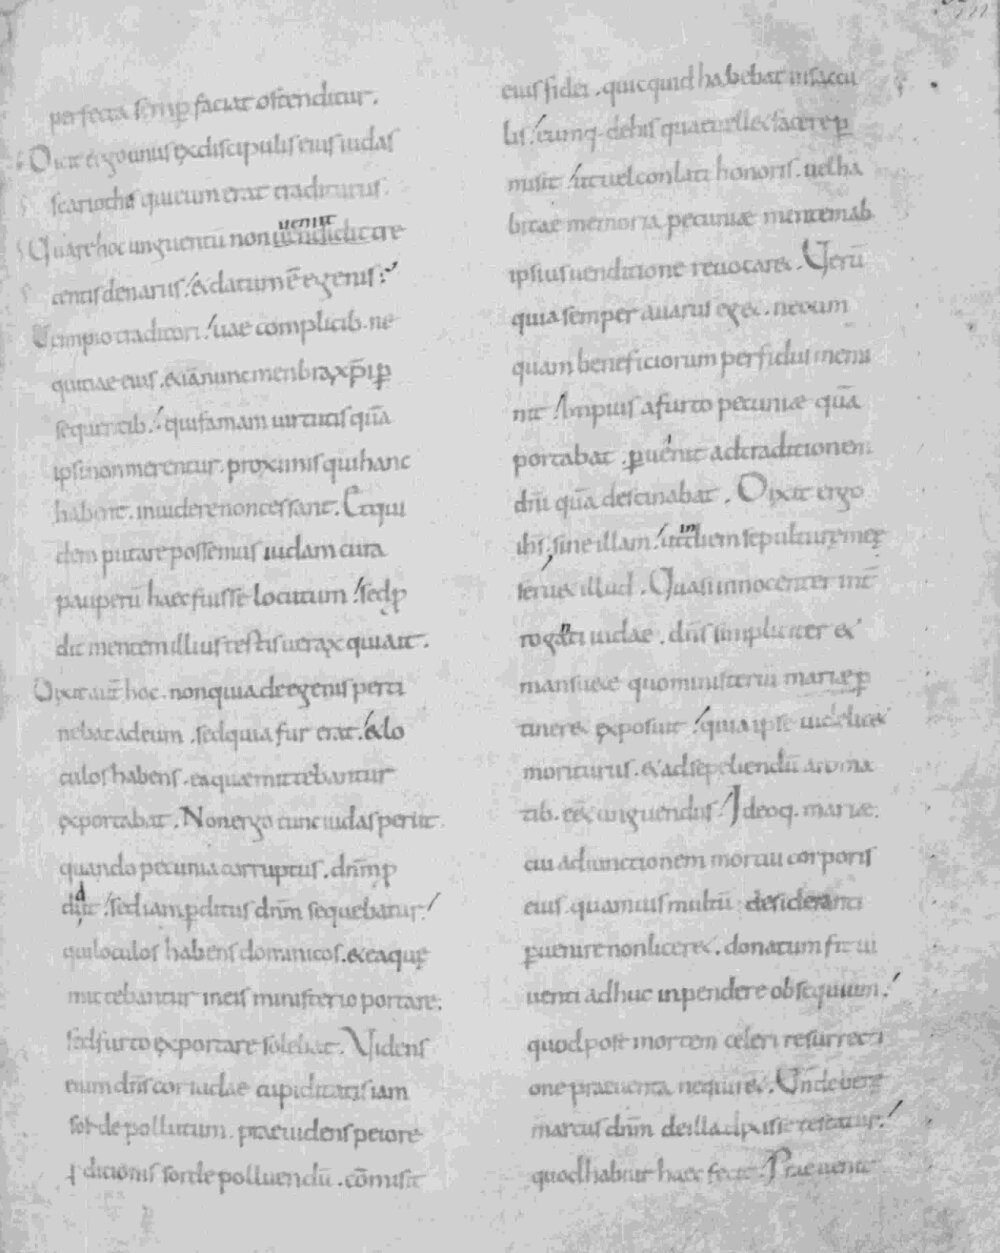 perfecta semp faciat ostenditur.
Dicit ergo unus ex discipulis eius iudas
scariothis qui eum erat traditurus.
Quare hoc unguentū non uenditū uenuit tre
centis denariis. & datum ē egenis;
Ve impio traditori. uae complicib. ne
quitiae eius. & iā nunc menbra xp̄i p
sequentib. qui famam uirtutis quā
ipsi non merentur. proximis qui hanc
habent. inuidere non cessant. Et qui
dem putare possemus iudam cura
pauperū haec fuisse locutum. sed p
dit mentem illius testis uerax qui ait.
Dixit aut̄ hoc. non quia de egenis perti
nebat ad eum. sed quia fur erat. & lo
culos habens. ea quae mittebantur
exportabat. Non ergo tunc iudas periit
quando pecunia corruptus. dn̄m p
didit. sed iam pditus dn̄m sequebatur.
qui loculos habens dominicos. & ea quę
mittebantur in eis ministerio portare.
sed furto exportare solebat. Videns
enim dn̄s cor iudae cupiditatis iam
sorde pollutum. praeuidens peiore
pditionis sorde polluendū. cōmisit
eius fidei. quicquid habebat in saccu
lis. eumq. de his quae uellet facere p
misit. ut uel conlati honoris. uel ha
bitae memoria pecuniae mentem ab
ipsius uenditione reuocaret. Verū
quia semper auarus eget. nec um
quam beneficiorum perfidus memi
nit. Impius a furto pecuniae quā
portabat. puenit ad traditionem
dn̄i quā destinabat. Dixit ergo
ih̄s. sine illam. ut in diem sepulturę meę
seruet illud. Quasi innocenter int̄
roganti iudae. dn̄s simpliciter &
mansuete quo ministeriū mariae p
tineret exposuit. quia ipse uidelicet
moriturus. & ad sepeliendū aroma
tib. ess& unguendus. Ideoq. mariae.
cui ad unctionem mortui corporis
eius. quamuis multū desideranti
puenire non liceret. donatum sit ui
uenti adhuc inpendere obsequium.
quod post mortem celeri resurrecti
one praeuenta nequiret. Vnde bene
marcus dn̄m de illa dixisse testatur.
quod habuit haec fecit. Praeuenit